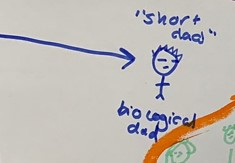 "short
dad"
biological
dad